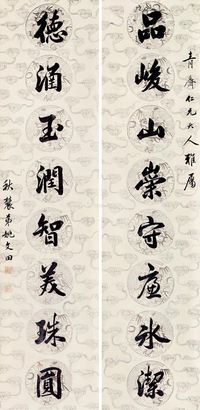 青齋仁兄大人雅屬
品峻山榮守廉冰潔
德涵玉潤智美珠圓
秋農弟姚文田